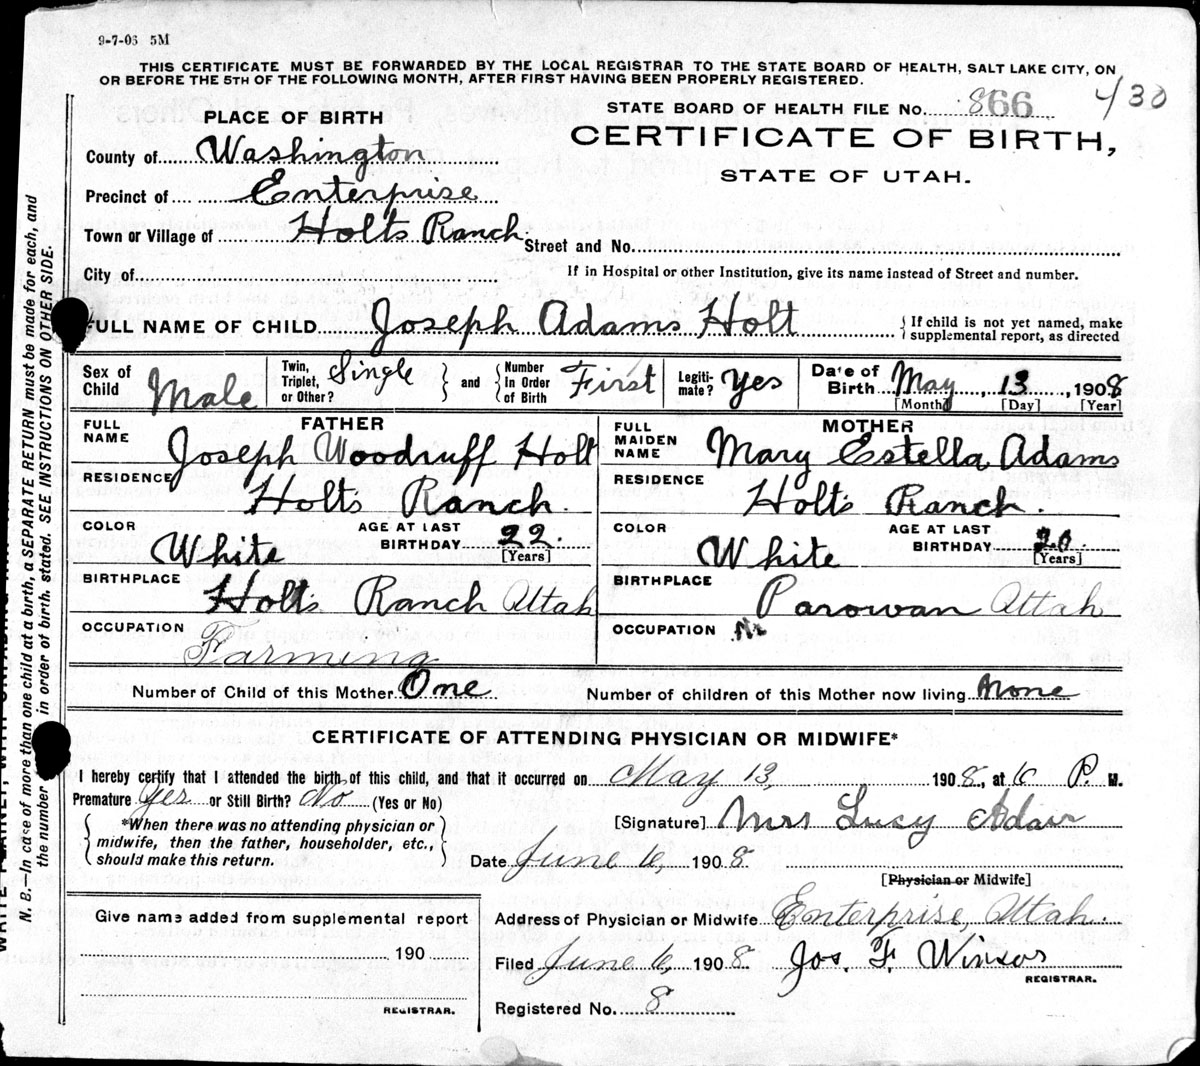 9-7-06 5M
THIS CERTIFICATE MUST BE FORWARDED BY THE LOCAL REGISTRAR TO THE STATE BOARD OF HEALTH, SALT LAKE CITY, ON
OR BEFORE THE 5TH OF THE FOLLOWING MONTH, AFTER FIRST HAVING BEEN PROPERLY REGISTERED.
STATE BOARD OF HEALTH FILE No. 866 430
PLACE OF BIRTH
CERTIFICATE OF BIRTH,
STATE OF UTAH.
County of Washington
Precinct of Enterprise
Town or Village of Holts Ranch Street and No.
City of
If in Hospital or other Institution, give its name instead of Street and number.
FULL NAME OF CHILD Joseph Adams Holt { If child is not yet named, make supplemental report, as directed
Sex of Child Male Twin, Triplet, or Other? Single } and { Number In Order of Birth First Legiti-mate? Yes Date of Birth May, 13, 1908
[Month] [Day] [Year]
FATHER
FULL NAME Joseph Woodruff Holt
RESIDENCE Holts Ranch.
COLOR White AGE AT LAST BIRTHDAY 22. [Years]
BIRTHPLACE Holts Ranch Utah
OCCUPATION Farming
MOTHER
FULL MAIDEN NAME Mary Estella Adams
RESIDENCE Holts Ranch.
COLOR White AGE AT LAST BIRTHDAY 20 [Years]
BIRTHPLACE Parowan Utah
OCCUPATION
Number of Child of this Mother One Number of children of this Mother now living None
CERTIFICATE OF ATTENDING PHYSICIAN OR MIDWIFE*
I hereby certify that I attended the birth of this child, and that it occurred on May 13, 1908, at 6 P. M.
Premature Yes or Still Birth? No (Yes or No)
{ *When there was no attending physician or midwife, then the father, householder, etc., should make this return. }
[Signature] Mrs Lucy Adair
Date June 6, 1908
[Physician or Midwife]
Give name added from supplemental report
190
REGISTRAR.
Address of Physician or Midwife Enterprise, Utah.
Filed June 6, 1908 Jos. F. Winsor
REGISTRAR.
Registered No. 8
N. B.—In case of more than one child at a birth, a SEPARATE RETURN must be made for each, and
the number in order of birth. stated. SEE INSTRUCTIONS ON OTHER SIDE.